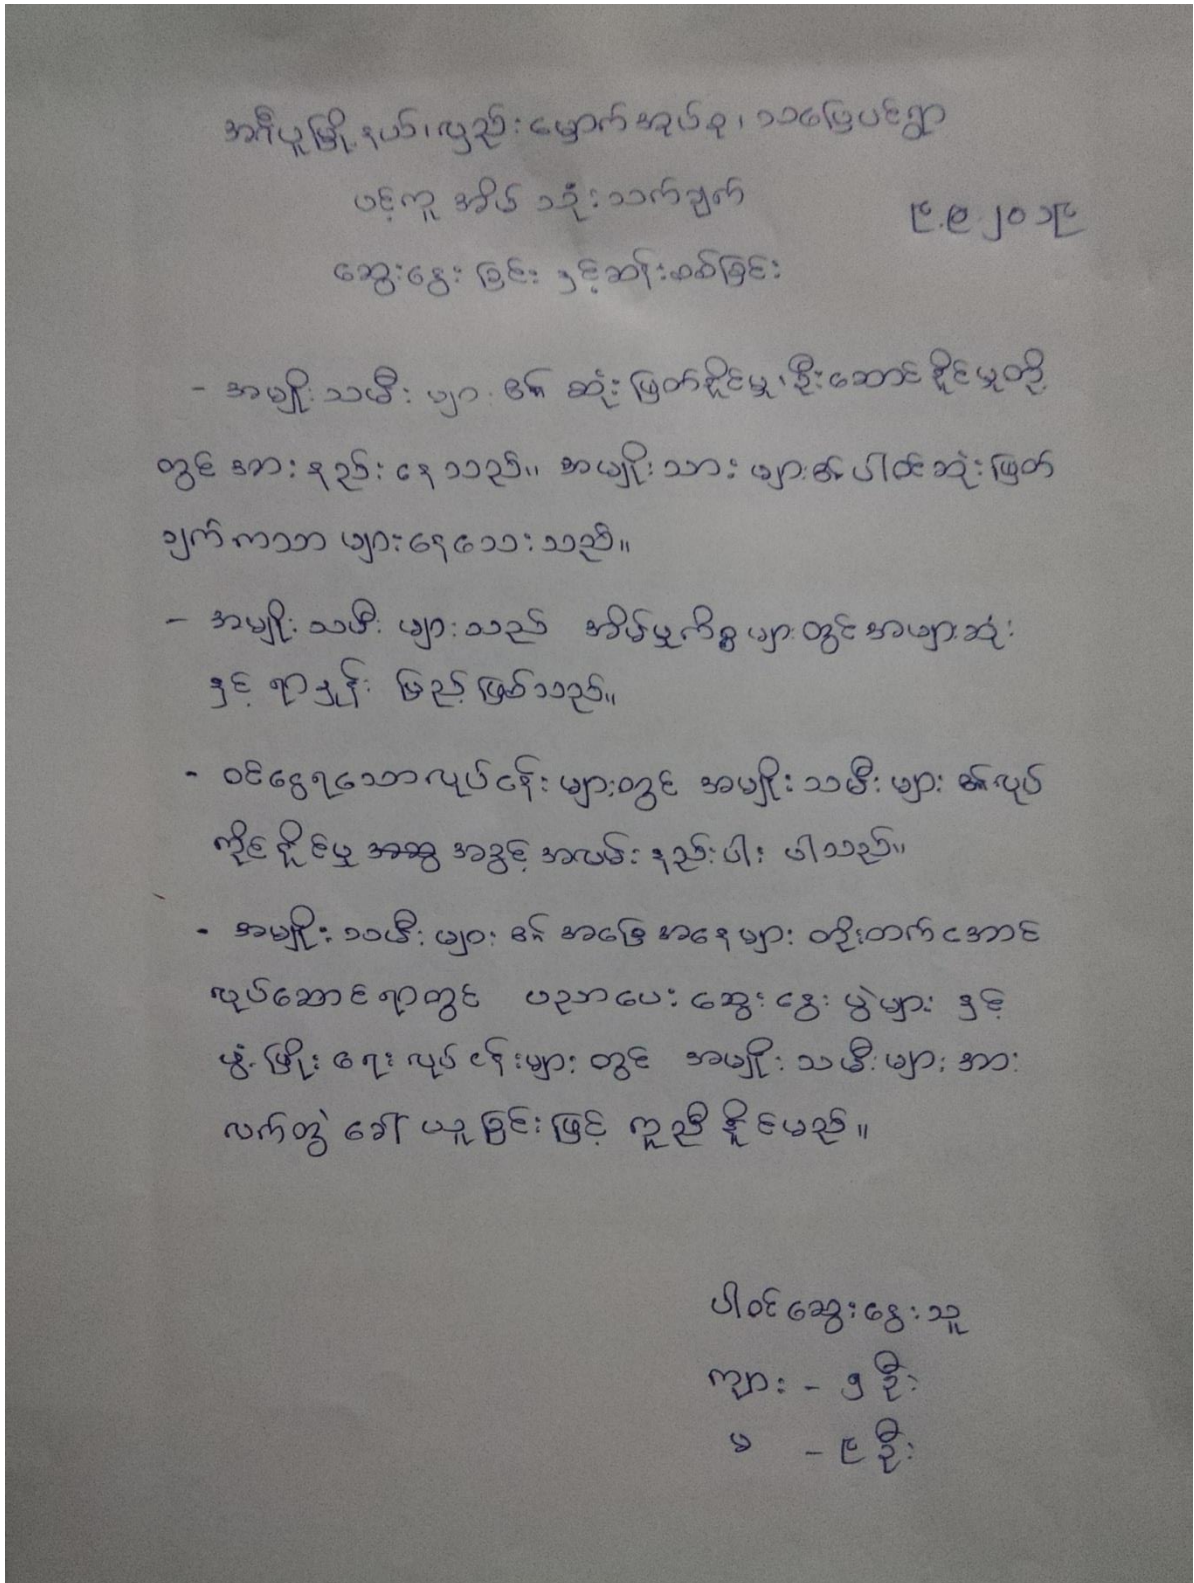 အင်္ဂပူမြို့နယ်၊လှည်းမှောက်အုပ်စု၊သပြေပင်ရွာ
ပင့်ကူအိမ် သုံးသက်ချက်
၉.၉.၂၀၁၉
ဆွေးနွေးခြင်း နှင့်ဆန်းစစ်ခြင်း
- အမျိုးသမီးများ၏ ဆုံးဖြတ်နိုင်မှု၊ဦးဆောင်နိုင်မှုတို့
တွင် အားနည်းနေသည်။ အမျိုးသားများ၏ပါဝင်ဆုံးဖြတ်
ချက်ကသာ များနေသေးသည်။
- အမျိုးသမီးများသည် အိမ်မှုကိစ္စများတွင်အများဆုံး
နှင့် ရာနှုန်းပြည့်ဖြစ်သည်။
- ဝင်ငွေရသောလုပ်ငန်းများတွင် အမျိုးသမီးများ၏လုပ်
ကိုင်နိုင်မှု အခွင့်အလမ်းနည်းပါးပါသည်။
- အမျိုးသမီးများ၏ အခြေအနေများ တိုးတက်အောင်
လုပ်ဆောင်ရာတွင် ပညာပေးဆွေးနွေးပွဲများ နှင့်
ဖွံ့ဖြိုးရေးလုပ်ငန်းများတွင် အမျိုးသမီးများအား
လက်တွဲခေါ်ယူခြင်းဖြင့် ကူညီနိုင်မည်။
ပါဝင်ဆွေးနွေးသူ
ကျား - ၅ဦး
မ - ၉ဦး